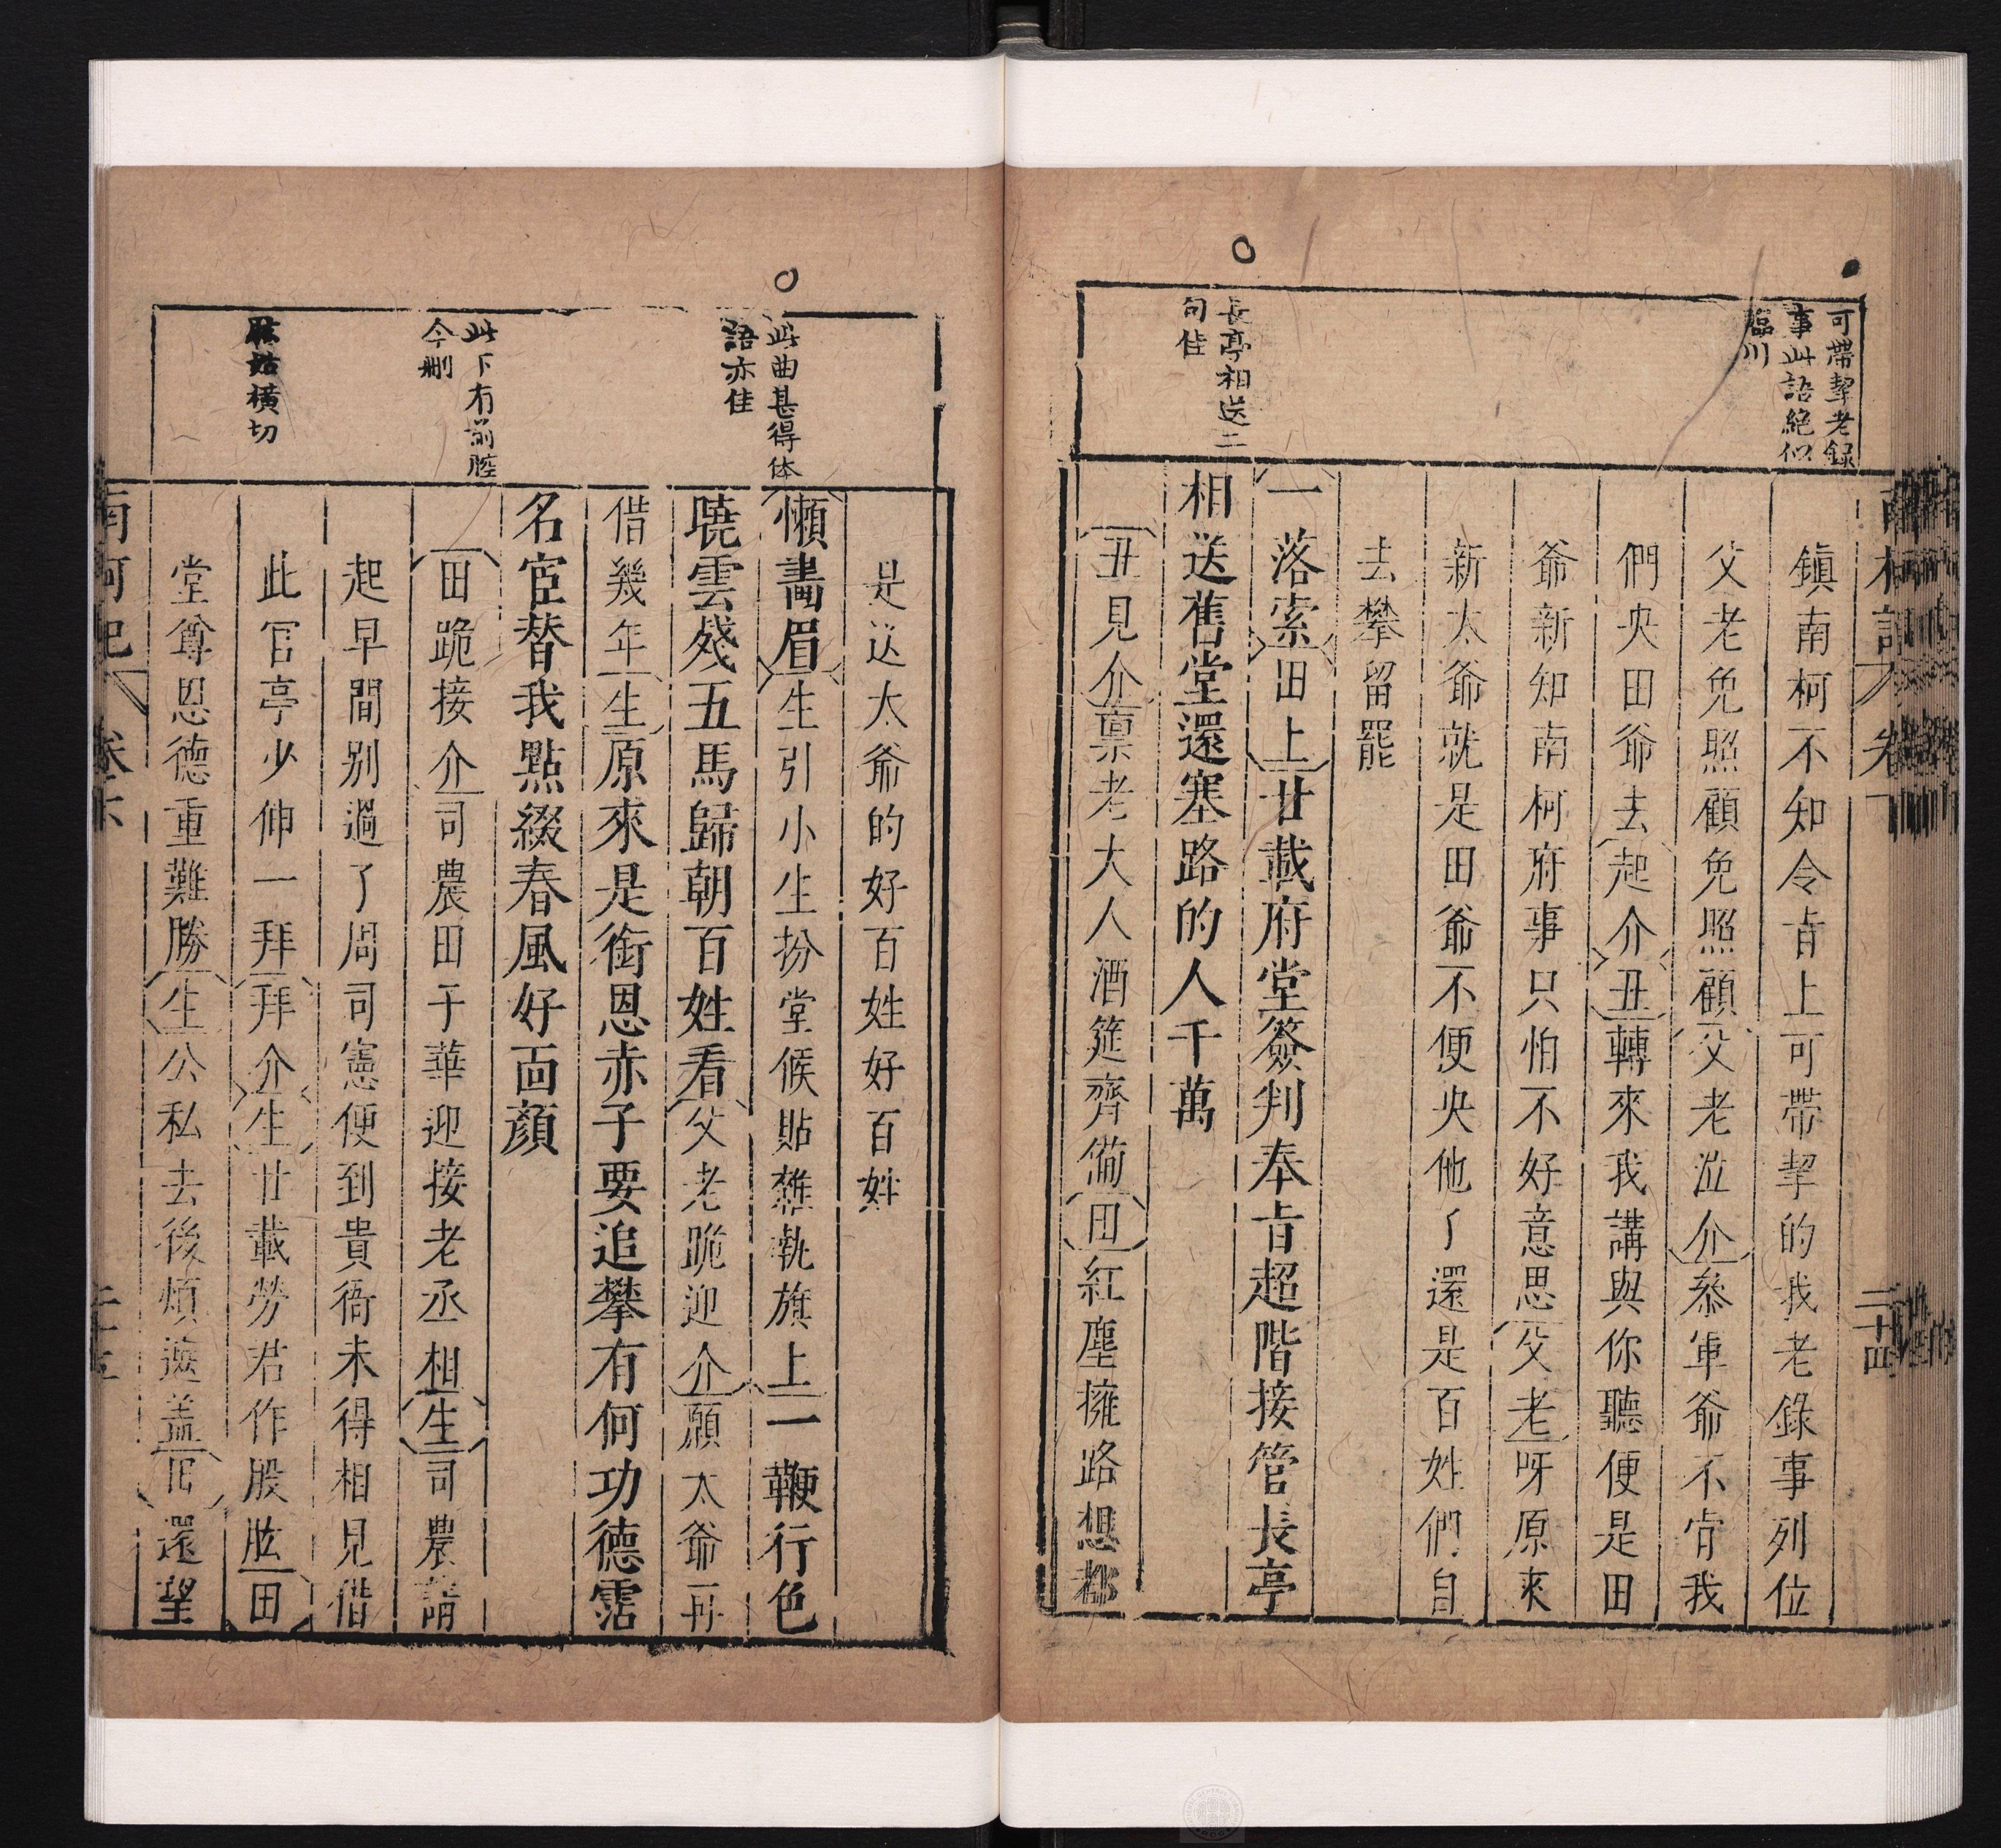 可帶挈老錄
事此語絕似
臨川
長亭相送二
句佳
鎮南柯不知令旨上可帶挈的我老錄事列位
父老免照顧免照顧父老泣介叅軍爺不肯我
們央田爺去起介丑轉來我講與你聽便是田
爺新知南柯府事只怕不好意思父老呀原來
新太爺就是田爺不便央他了還是百姓們自
去攀留罷
一落索田上廿載府堂簽判奉旨超階接管長亭
相送舊堂還塞路的人千萬
丑見介禀老大人酒筵齊備田紅塵擁路想都
二十四
此曲甚得体
語亦佳
此下有前腔
今刪
股肱橫切
是送太爺的好百姓好百姓
懶畫眉生引小生扮堂候貼雜執旗上一鞭行色
曉雲殘五馬歸朝百姓看父老跪迎介願太爺再
借幾年生原來是銜恩赤子要追攀有何功德霑
名宦替我點綴春風好面顏
田跪接介司農田子華迎接老丞相生司農請
起早間別過了周司憲便到貴衙未得相見借
此官亭少伸一拜拜介生廿載勞君作股肱田
堂尊恩德重難勝生公私去後煩遮蓋田還望
南柯記 卷下